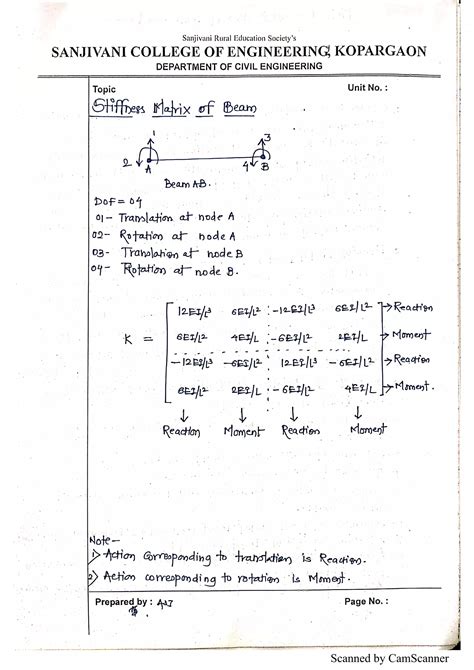 Sanjivani Rural Education Society's
SANJIVANI COLLEGE OF ENGINEERING, KOPARGAON
DEPARTMENT OF CIVIL ENGINEERING
Topic Unit No. :
Stiffness Matrix of Beam
1 3
2 A 4 B
Beam AB.
DOF = 04
01 - Translation at node A
02 - Rotation at node A
03 - Translation at node B
04 - Rotation at node B.
12EI/L³ 6EI/L² -12EI/L³ 6EI/L² → Reaction
K = 6EI/L² 4EI/L -6EI/L² 2EI/L → Moment
-12EI/L³ -6EI/L² 12EI/L³ -6EI/L² → Reaction
6EI/L² 2EI/L -6EI/L² 4EI/L → Moment.
↓ ↓ ↓ ↓
Reaction Moment Reaction Moment
Note -
1) Action corresponding to translation is Reaction.
2) Action corresponding to rotation is Moment.
Prepared by : Page No. :
Scanned by CamScanner